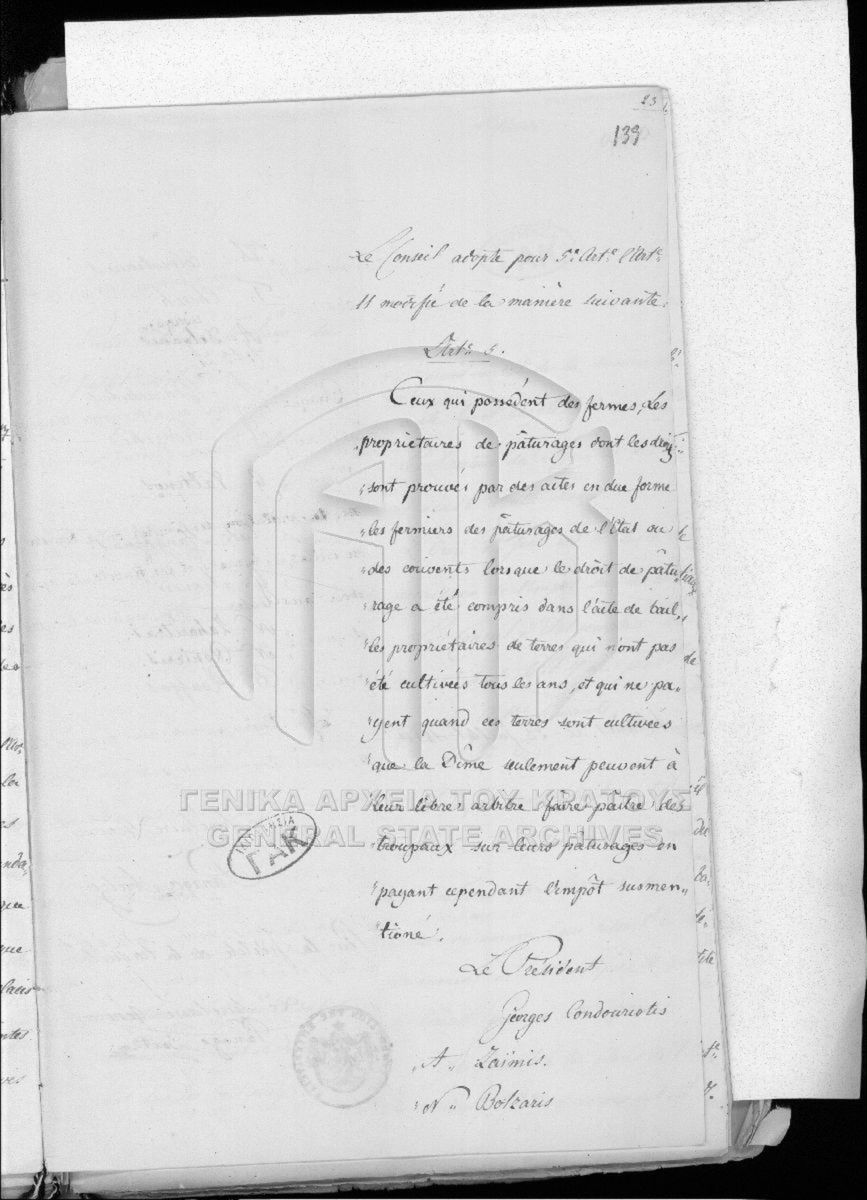 23
139
Le Conseil adopte pour 5e Arte l'Arte
11 modifié de la manière suivante.
Arte 5.
Ceux qui possèdent des fermes, les
propriétaires de pâturages dont les droits
sont prouvés par des actes en due forme
les fermiers des pâturages de l'Etat ou
des couvents lorsque le droit de pâtu-
rage a été compris dans l'acte de bail,
les propriétaires de terres qui n'ont pas
été cultivées tous les ans, et qui ne pa-
yent quand ces terres sont cultivées
que la Dîme seulement peuvent à
leur libre arbitre faire paître des
troupaux sur leurs pâturages en
payant cependant l'impôt susmen-
tioné.
Le Président
Georges Condouriotis
A. Zaïmis.
N. Botzaris
ΓΕΝΙΚΑ ΑΡΧΕΙΑ ΤΟΥ ΚΡΑΤΟΥΣ
GENERAL STATE ARCHIVES
ΓΑΚ